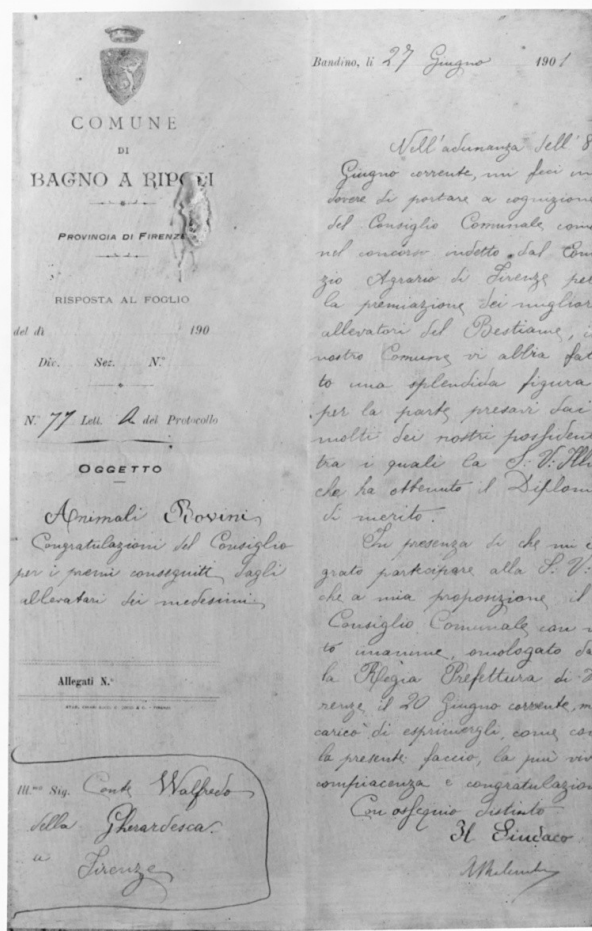 COMUNE
DI
BAGNO A RIPOLI
PROVINCIA DI FIRENZE
RISPOSTA AL FOGLIO
del dì 190
Div. Sez. N.°
N.° 77 Lett. A del Protocollo
OGGETTO
Animali Bovini
Congratulazioni del Consiglio
per i premi conseguiti dagli
allevatori dei medesimi
Allegati N.°
Ill.mo Sig. Conte Walfredo
della Gherardesca
a
Firenze
Bandino, lì 27 Giugno 1901
Nell'adunanza dell'8
Giugno corrente, mi feci in
dovere di portare a cognizione
del Consiglio Comunale come
nel concorso indetto dal Comi
zio Agrario di Firenze per
la premiazione dei miglior
allevatori del Bestiame, i
nostro Comune vi abbia fat
to una splendida figura
per la parte presavi dai
molti dei nostri possident
tra i quali la S. V. Ill
che ha ottenuto il Diplom
di merito.
In presenza di che mi è
grato partecipare alla S. V.
che a mia proposizione il
Consiglio Comunale con v
to unanime, omologato da
la Regia Prefettura di Fi
renze il 20 Giugno corrente, m
caricò di esprimergli, come con
la presente faccio, la più viv
compiacenza e congratulazion
Con ossequio distinto
Il Sindaco